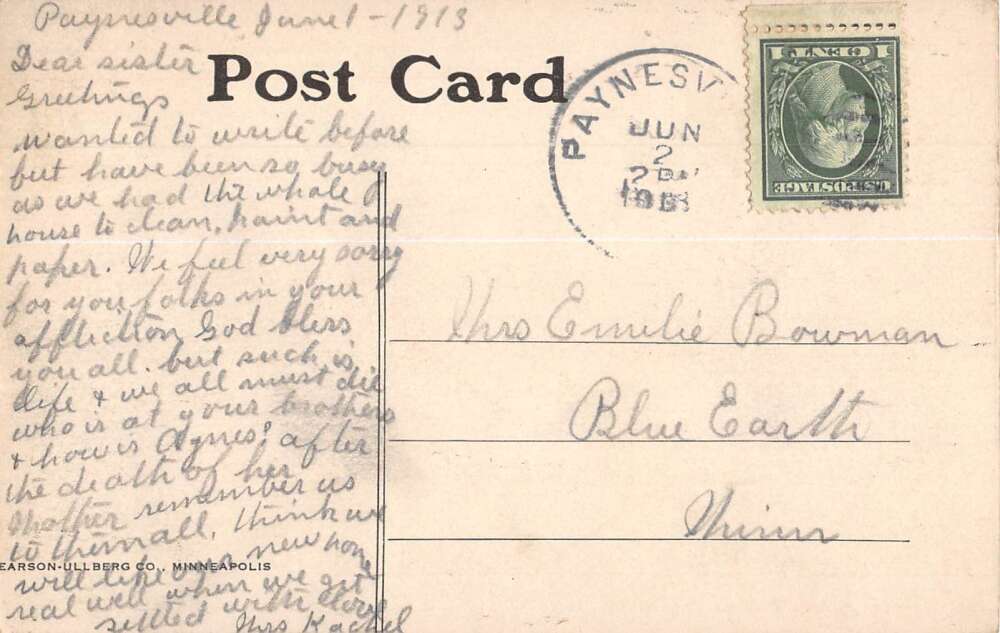 Paynesville June 1 - 1913
Dear sister
Greetings
wanted to write before
but have been so busy
as we had the whole
house to clean, paint and
paper. We feel very sorry
for you folks in your
affliction God bless
you all. but such is
life & we all must die
who is at your brothers
& how is Agnes? after
the death of her
Mother remember us
to them all, think we
will like our new home
real well when we get
settled with love
Mrs Rachel
Post Card
PAYNESV
JUN
2
191
1 CENT 1
U.S. POSTAGE
Mrs Emilie Bowman
Blue Earth
Minn
EARSON-ULLBERG CO., MINNEAPOLIS